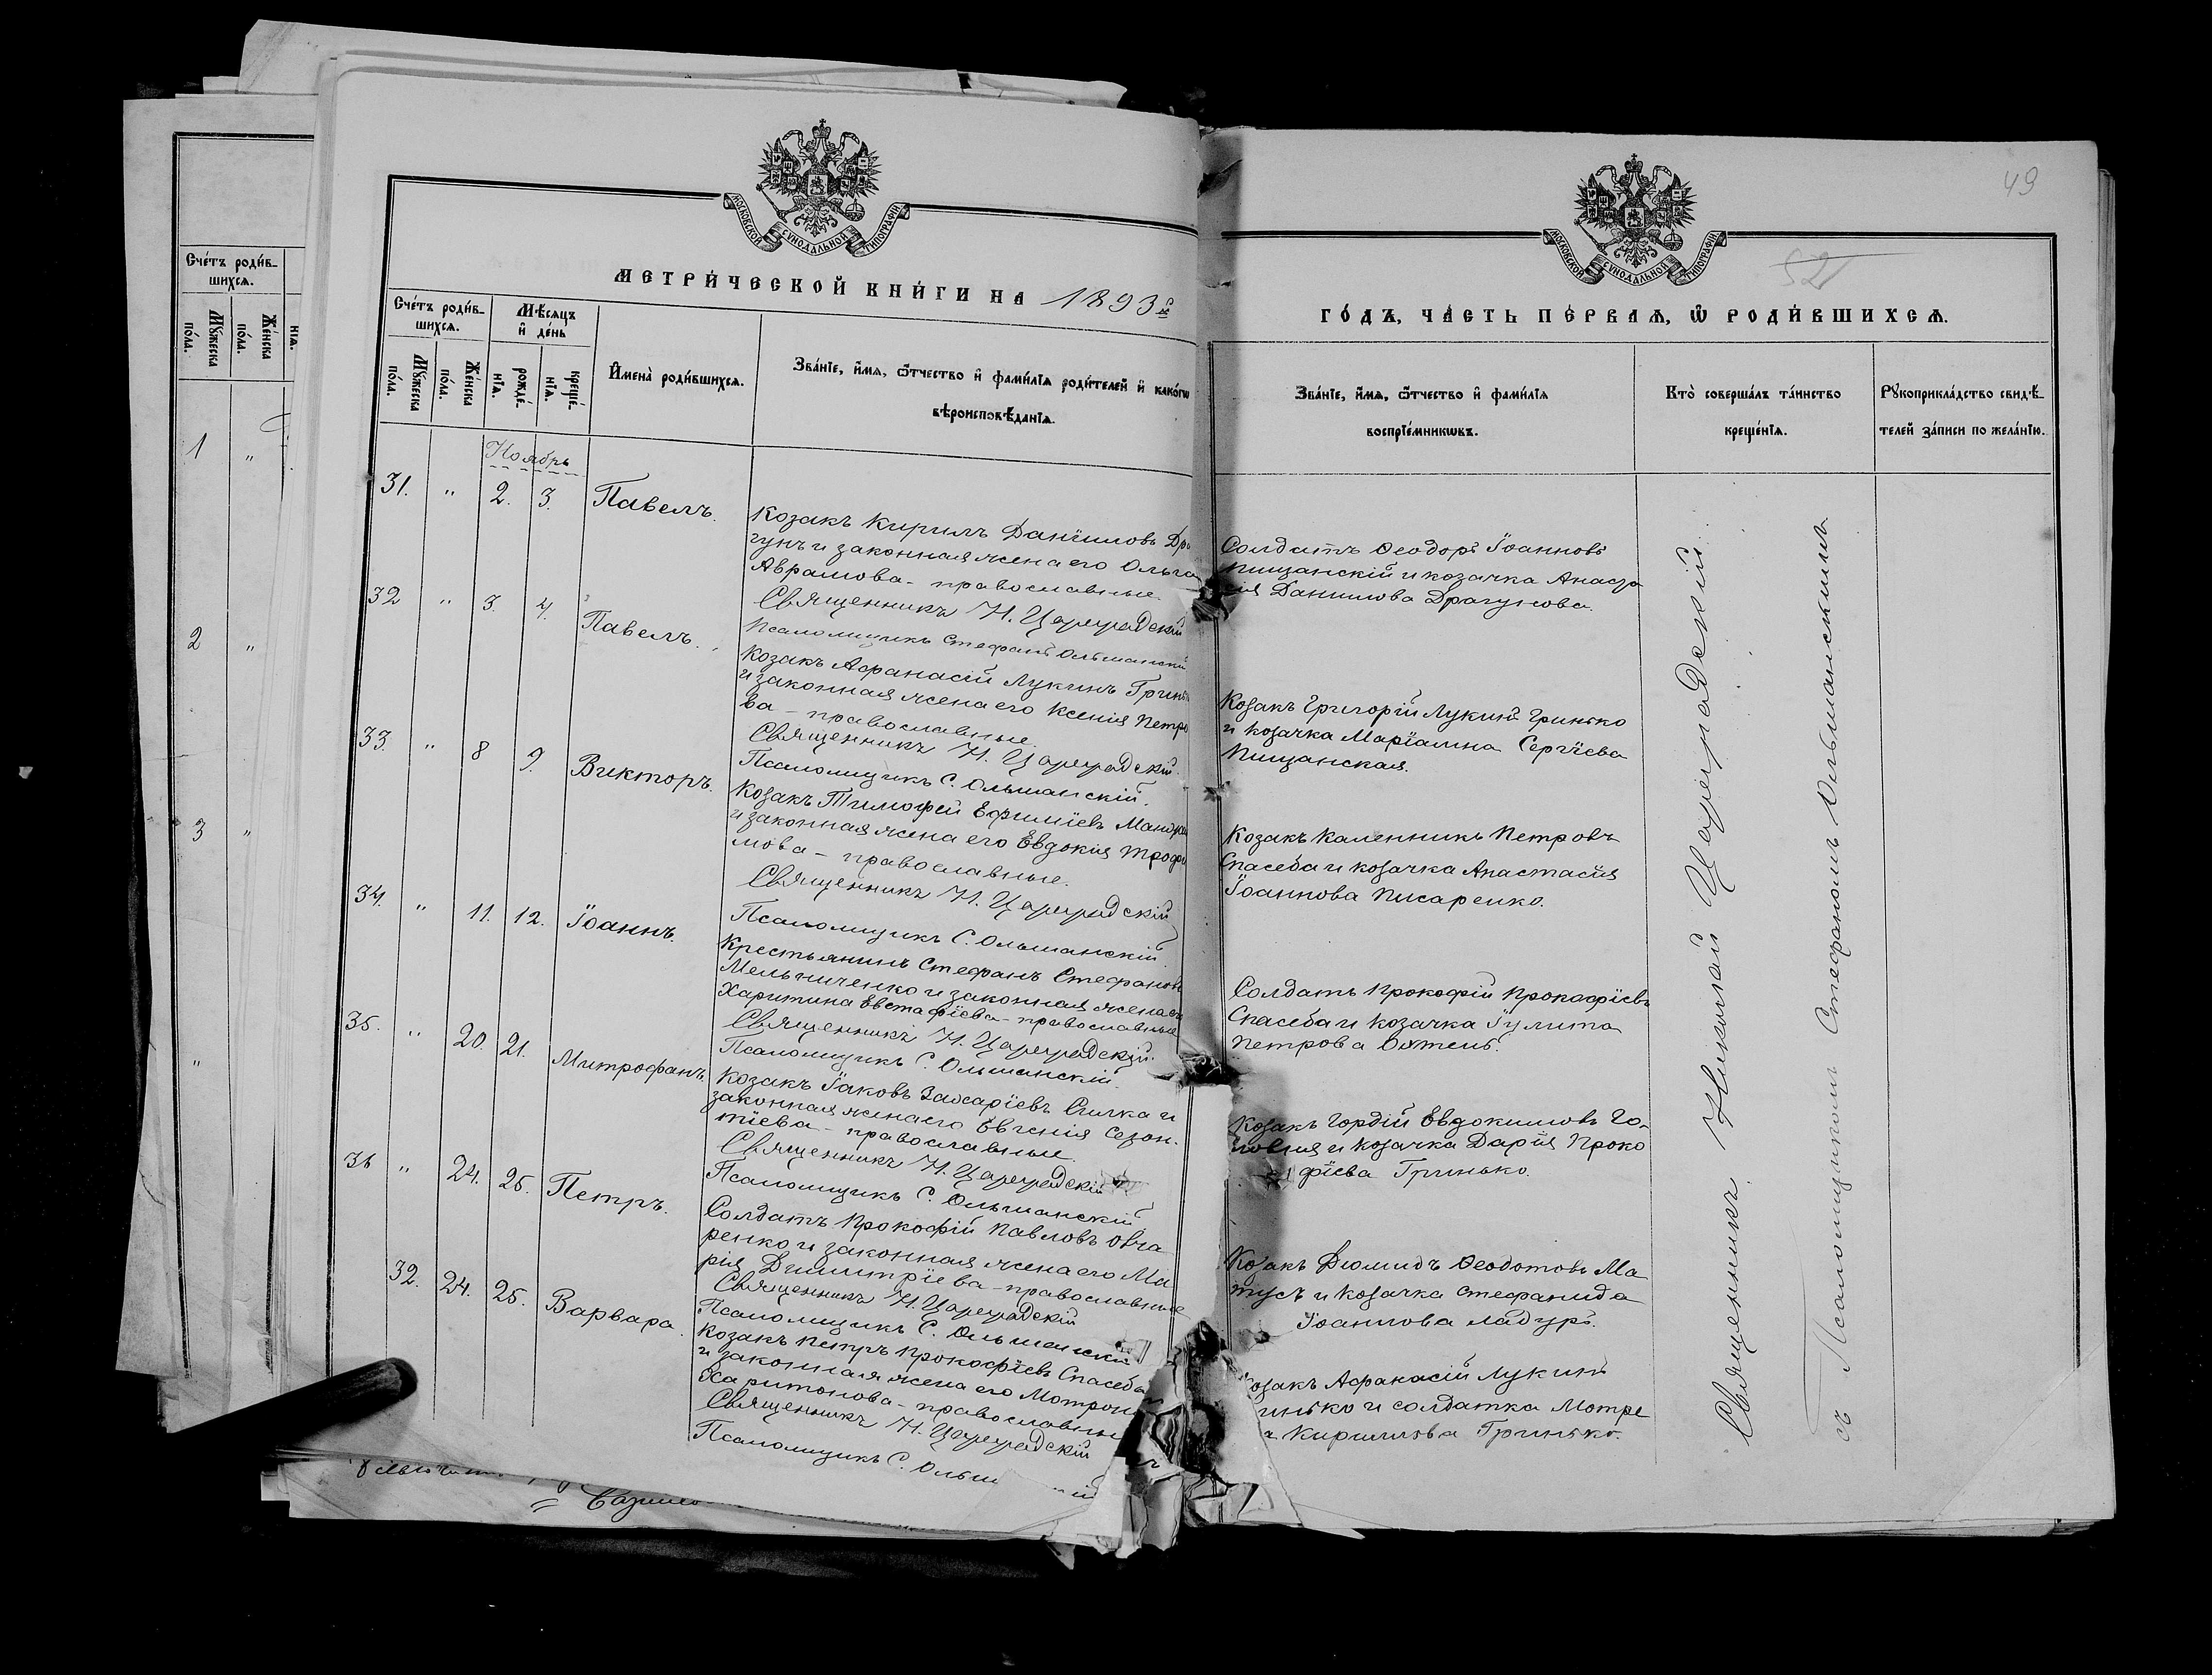 49
МОСКОВСКОЙ СУНОДАЛЬНОЙ ТИПОГРАФІИ
МОСКОВСКОЙ СУНОДАЛЬНОЙ ТИПОГРАФІИ
52
МЕТРИ́ЧЕСКОЙ КНИ́ГИ НА 1893 г
ГО́ДЪ, ЧА́СТЬ ПЕ́РВАѦ, Ѡ҆ РОДИ́ВШИХСѦ.
Сче́тъ роди́в-
шихсѧ.
Мꙋ́жеска
по́ла.
Же́нска
по́ла.
Мѣ́сѧцъ
и҆ де́нь
рожде́-
нїѧ.
креще́-
нїѧ.
И҆мена̀ роди́вшихсѧ.
Зва́нїе, и҆́мѧ, ѻ҆́тчество и҆ фами́лїѧ роди́телей и҆ како́гѡ
вѣроисповѣ́данїѧ.
Зва́нїе, и҆́мѧ, ѻ҆́тчество и҆ фами́лїѧ
воспрїе́мникѡвъ.
Кто̀ соверша́лъ та́инство
креще́нїѧ.
Рꙋкоприкла́дство свидѣ́-
телей за́писи по жела́нїю.
Сче́тъ роди́в-
шихсѧ.
Мꙋ́жеска
по́ла.
Же́нска
по́ла.
нїѧ.
1 "
2 "
3 "
"
Ноябрь
31. " 2. 3. Павелъ.
Козакъ Кирилъ Даніиловъ Дра
гунъ и законная жена его Ольга
Аврамова - православные.
Священникъ Н. Цареградскій
Псаломщикъ Стефанъ Ольшанскій
Солдатъ Ѳеодоръ Іоанновъ
Пищанскій и козачка Анаста
сія Данилова Драгунова.
32 " 3. 4. Павелъ.
Козакъ Афанасій Лукинъ Гринь
и законная жена его Ксенія Петро
ва - православные.
Священникъ Н. Цареградскій.
Псаломщикъ С. Ольшанскій.
Козакъ Григорій Лукинъ Гринько
и козачка Маріамна Сергіева
Пищанская.
33. " 8 9. Викторъ.
Козакъ Тимофей Ефиміевъ
и законная жена его Евдокія Трофи
мова - православные.
Священникъ Н. Цареградскій
Псаломщикъ С. Ольшанскій
Козакъ Каленникъ Петровъ
Спасеба и козачка Анастасія
Іоаннова Писаренко.
34. " 11. 12. Іоаннъ.
Крестьянинъ Стефанъ Стефановъ
Мельниченко и законная жена его
Харитина Евстафіева - православные
Священникъ Н. Цареградскій.
Псаломщикъ С. Ольшанскій.
Солдатъ Прокофій Прокофіевъ
Спасеба и козачка Іулита
Петрова
35. " 20. 21. Митрофанъ.
Козакъ Іаковъ Захаріевъ и
законная жена его Евгенія Созон-
тіева - православные.
Священникъ Н. Цареградскій
Псаломщикъ С. Ольшанскій
Козакъ Гордій Евдокимовъ Го-
ловня и козачка Дарія Проко
фіева Гринько.
36 " 24. 25. Петръ.
Солдатъ Прокофій Павловъ Овча
ренко и законная жена его Ма
рія Димитріева - православные
Священникъ Н. Цареградскій
Псаломщикъ С. Ольшанскій
Козакъ Діомидъ Ѳеодотовъ Ма
тусъ и козачка Стефанида
Іоаннова
32. 24. 25. Варвара.
Козакъ Петръ Прокофіевъ Спасеба
и законная жена его Мотрона
Харитонова - православные
Священникъ Н. Цареградскій
Псаломщикъ С. Ольш
озакъ Афанасій Лукинъ
инько и солдатка Мотре
а Кириллова Гринько.
Священникъ Николай Цареградскій
съ Псаломщикомъ Стефаномъ Ольшанскимъ